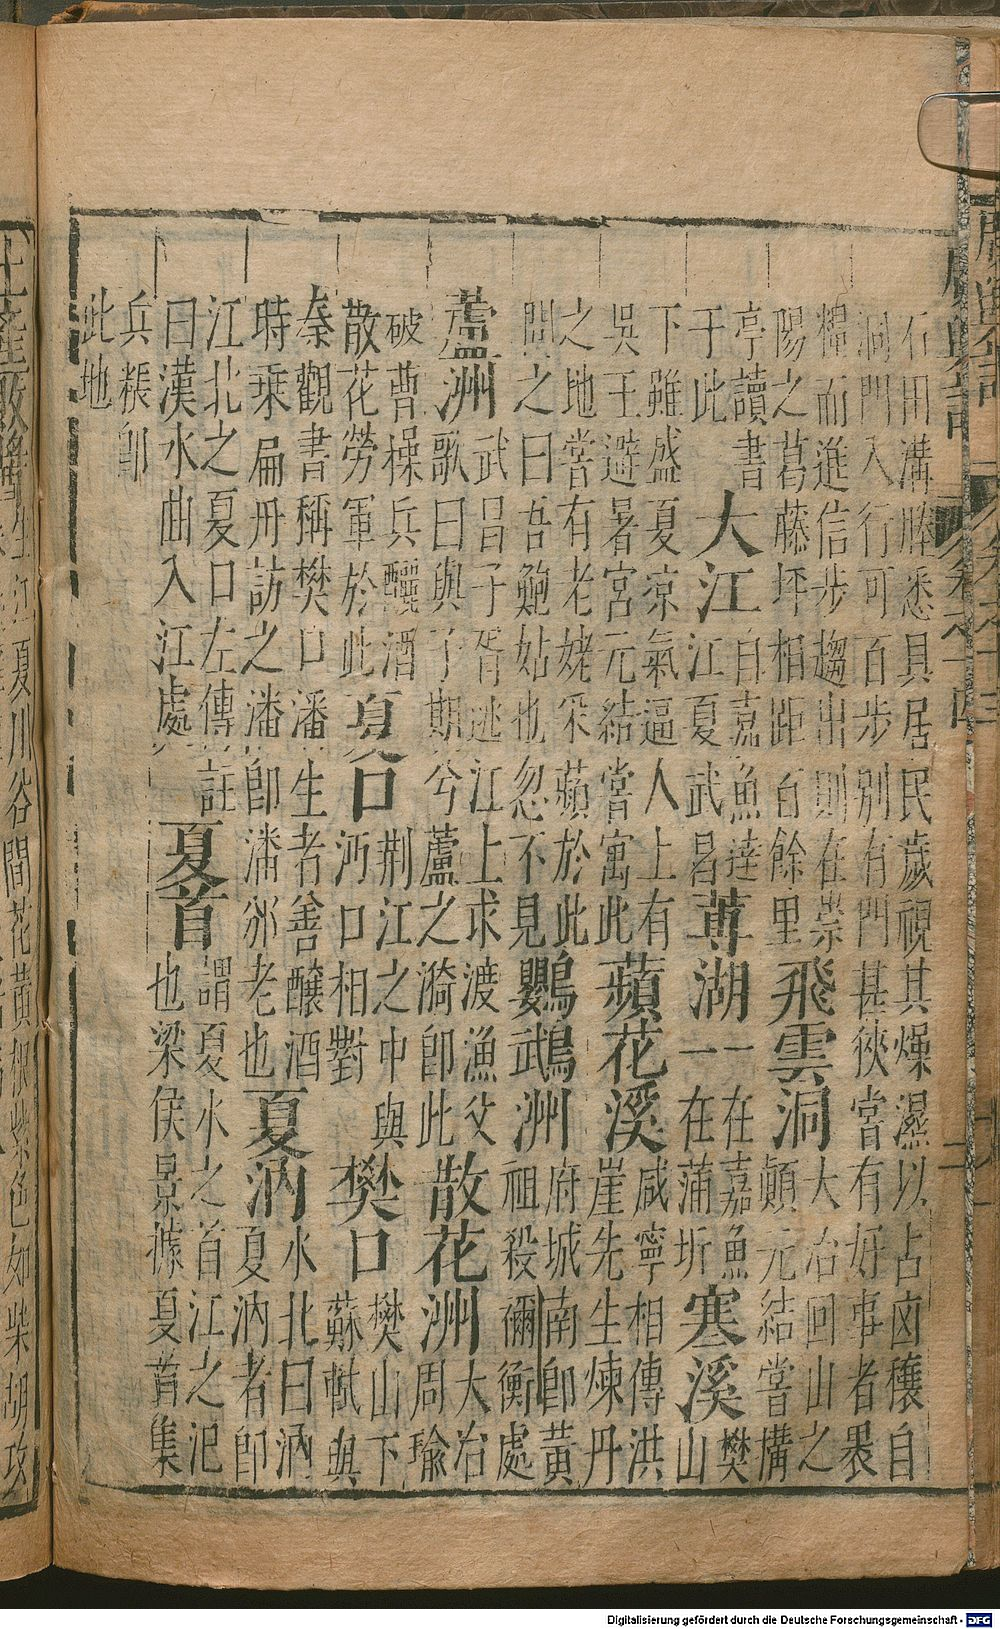 石田溝塍悉具居民歲視其燥濕以占囟穰自
洞門入行可百步別有門甚狹嘗有好事者褁
糧而進信步趨出則在崇
陽之葛藤坪相距百餘里
飛雲洞
大冶回山之
顛元結嘗搆
亭讀書
于此
大江
自嘉魚達
江夏武昌
蓴湖
一在嘉魚
一在蒲圻
寒溪
樊
山
下雖盛夏涼氣逼人上有
吳王避暑宮元結嘗寓此
蘋花溪
咸寧相傳洪
崖先生煉丹
之地嘗有老姥采蘋於此
問之曰吾鮑姑也忽不見
鸚鵡洲
府城南卽黃
祖殺禰衡處
蘆洲
武昌子胥逃江上求渡漁父
歌曰與子期兮蘆之漪卽此
散花洲
大冶
周瑜
破曹操兵釃酒
散花勞軍於此
夏口
荆江之中與
沔口相對
樊口
樊山下
蘇軾與
秦觀書稱樊口潘生者善釀酒
時乘扁舟訪之潘卽潘邠老也
夏汭
水北曰汭
夏汭者卽
江北之夏口左傳註
曰漢水曲入江處
夏首
謂夏水之首江之汜
也梁侯景據夏首集
兵粻卽
此地
Digitalisierung gefördert durch die Deutsche Forschungsgemeinschaft - DFG